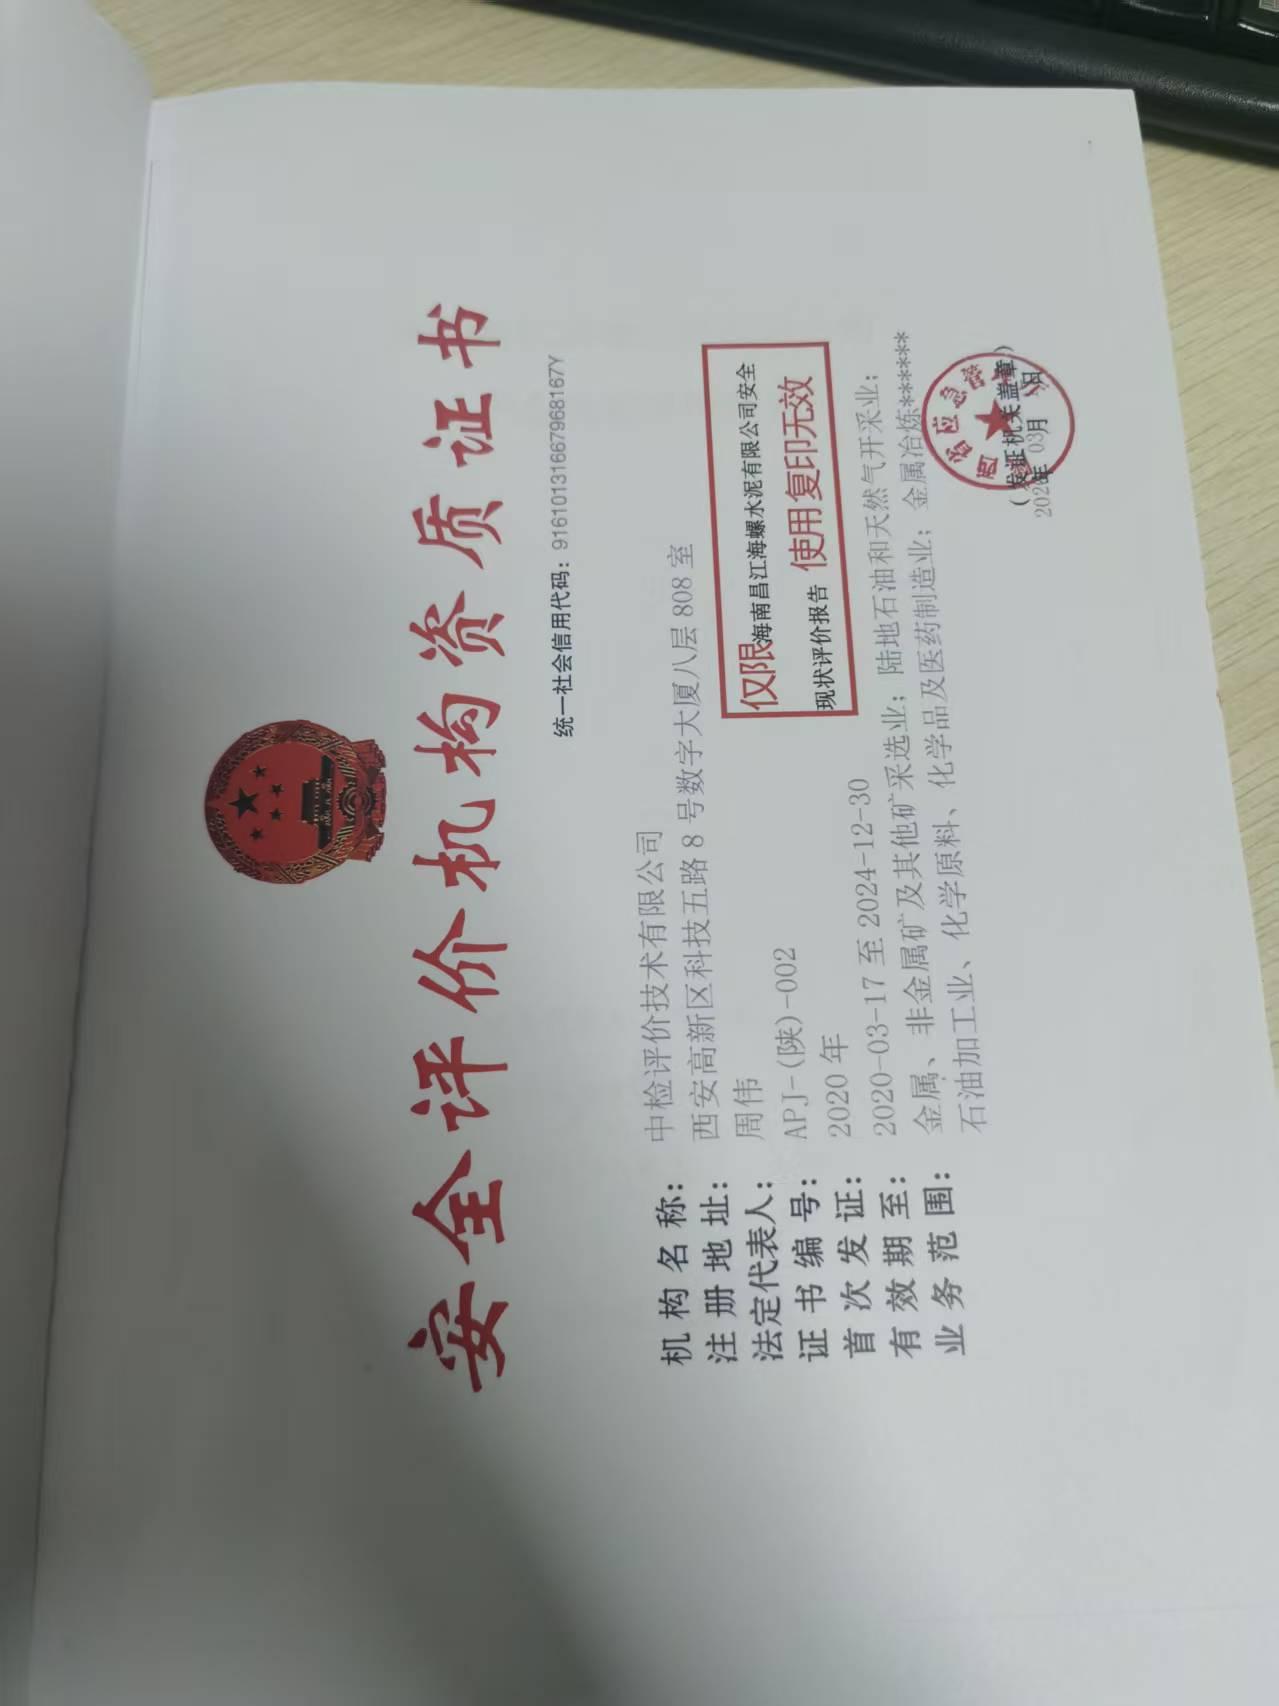 安全评价机构资质证书
统一社会信用代码：91610131667968167Y
机构名称：中检评价技术有限公司
注册地址：西安高新区科技五路8号数字大厦八层808室
法定代表人：周伟
证书编号：APJ-(陕)-002
首次发证：2020年
有效期至：2020-03-17至2024-12-30
业务范围：金属、非金属矿及其他矿采选业；陆地石油和天然气开采业；
石油加工业、化学原料、化学品及医药制造业；金属冶炼******
仅限海南昌江海螺水泥有限公司安全
现状评价报告使用复印无效
西省应急管
（发证机关盖章）
年03月 日